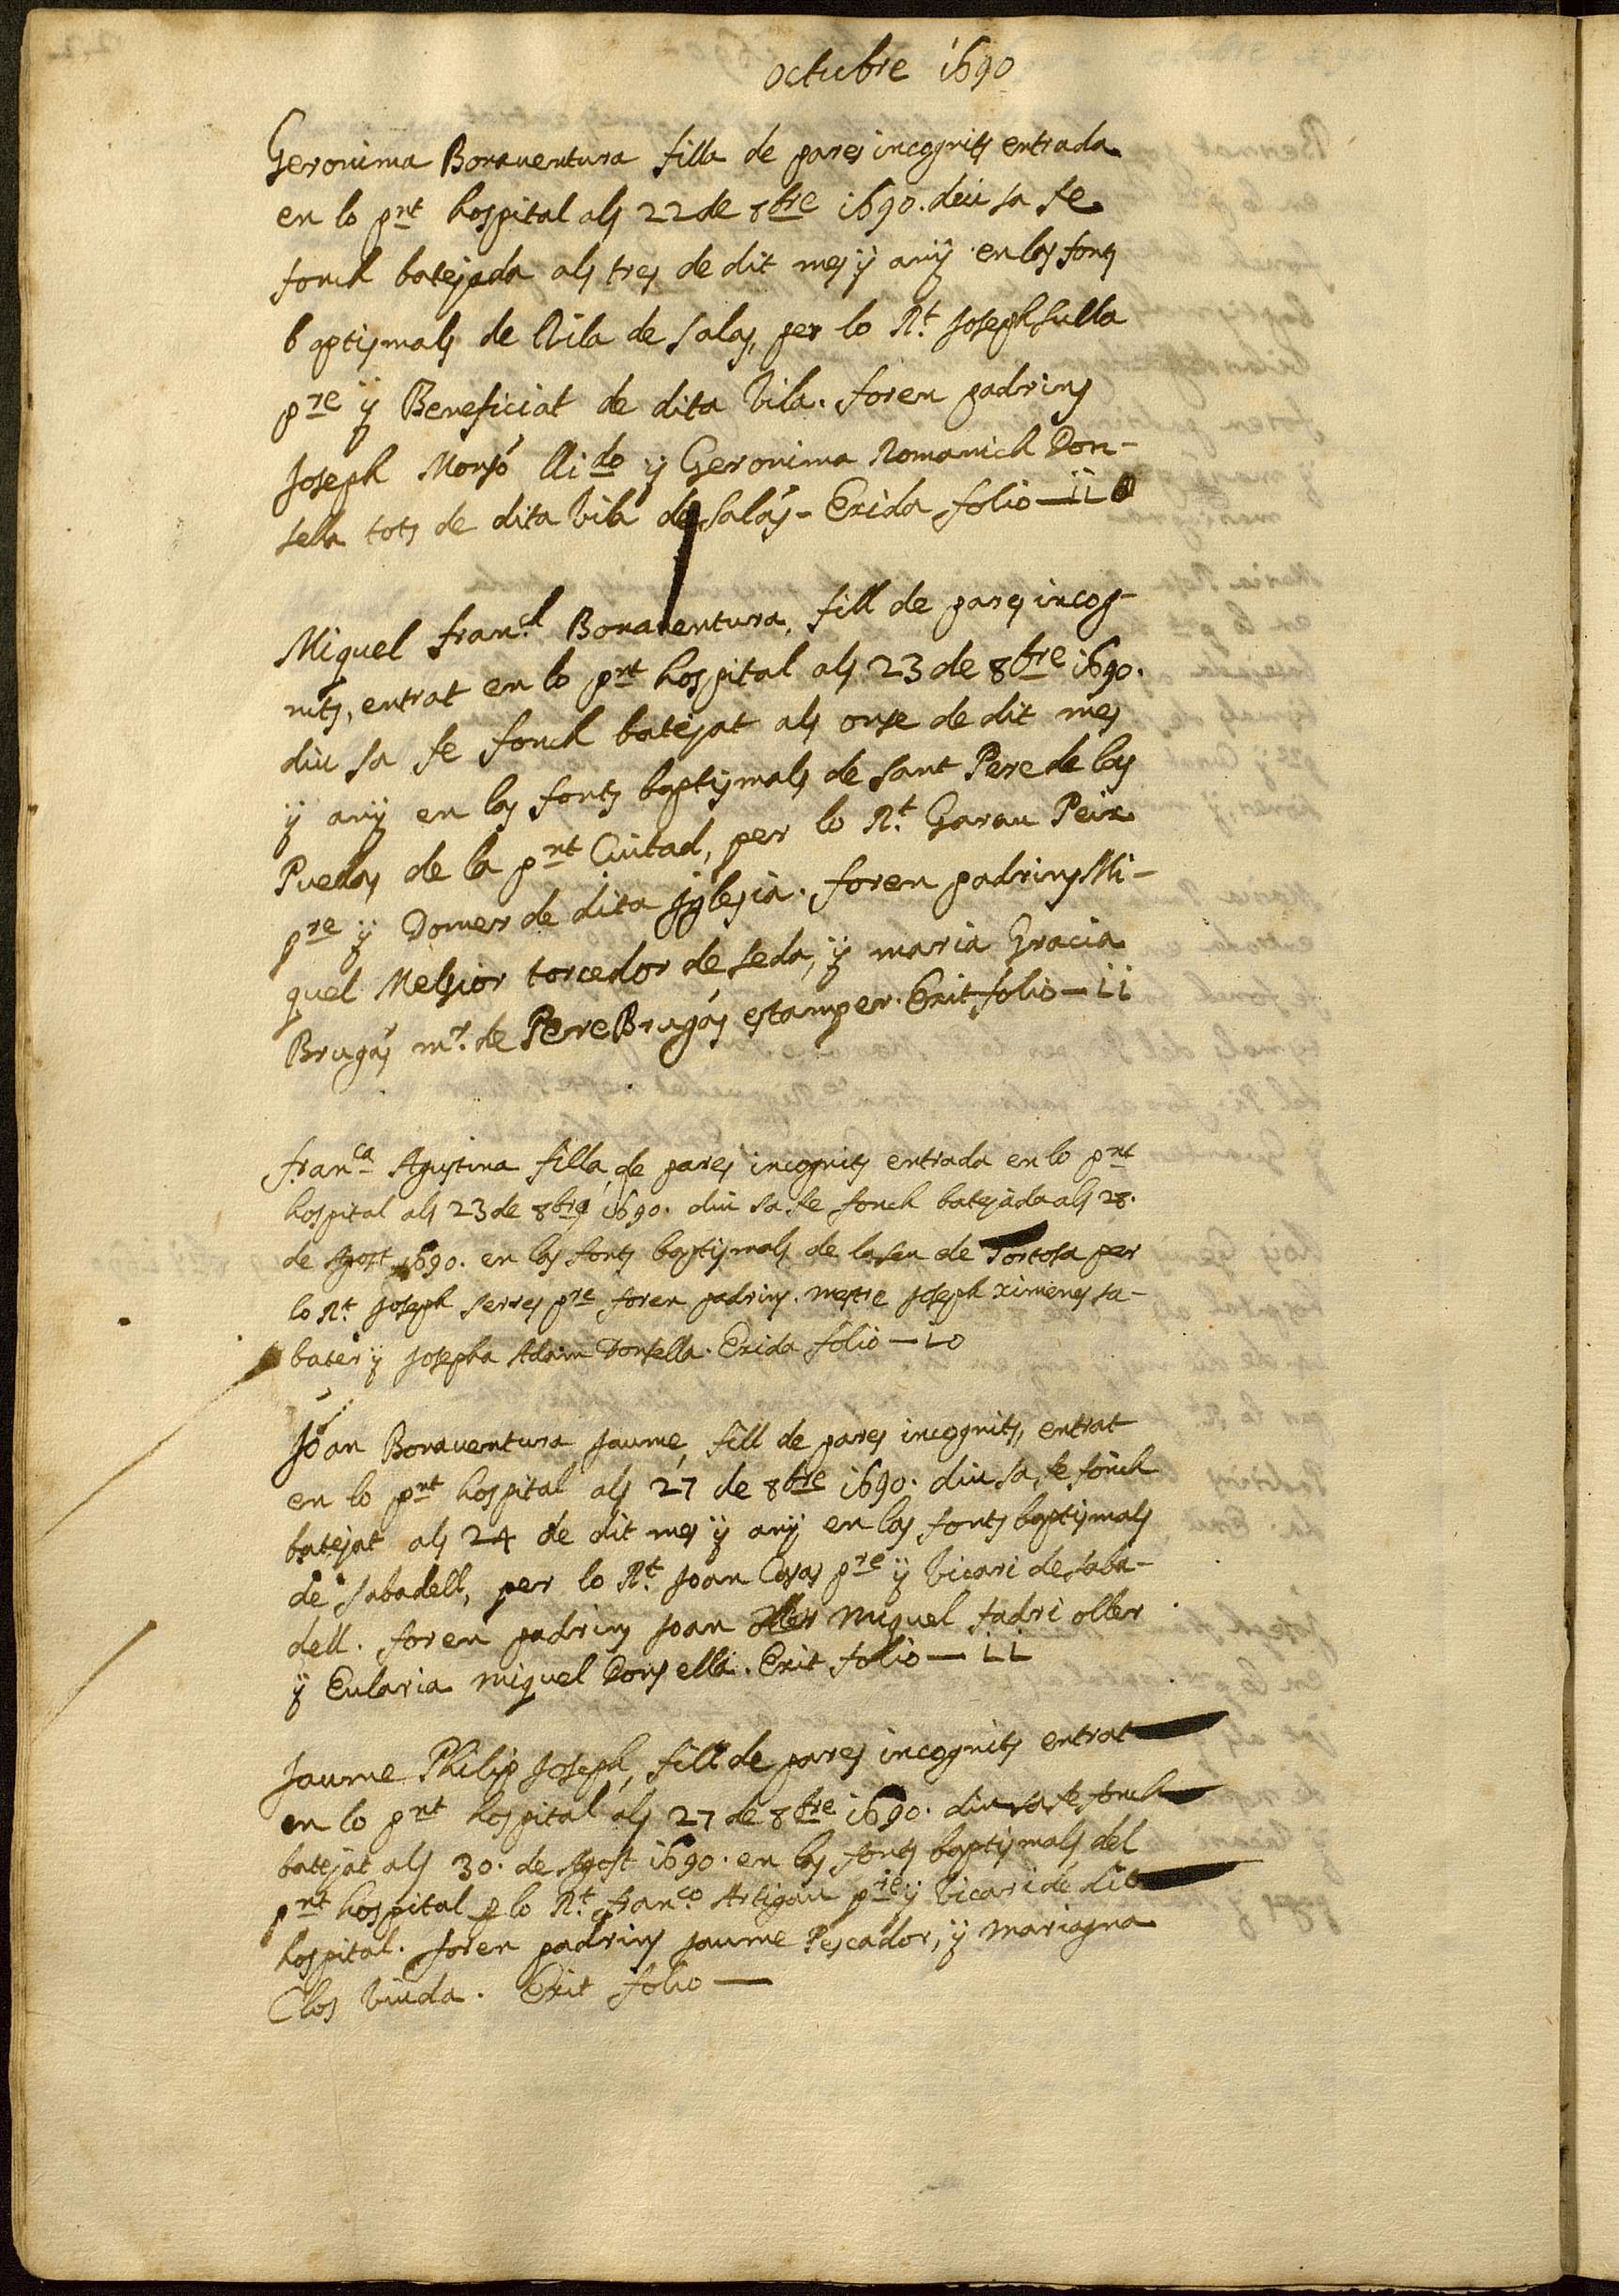 octubre 1690
Geronima Bonaventura filla de pares incognits entrada
en lo pnt hospital als 22 de 8bre 1690. diu sa fe
fonch batejada als tres de dit mes y any en las fonts
baptismals de Vila de Salas, per lo Rt. Joseph Sulla
pre y Beneficiat de dita Vila. foren padrins
Joseph Monsó Llido y Geronima Romanich Don-
sella tots de dita Vila de Salás - Exida folio - 11
Miquel franch. Bonaventura, fill de pares incog-
nits, entrat en lo pnt hospital als 23 de 8bre 1690.
diu sa fe fonch batejat als onse de dit mes
y any en las fonts baptismals de Sant Pere de las
Puellas de la pnt Ciutad, per lo Rt. Garau Peix
pre y Domer de dita Iglesia. foren padrins Mi-
quel Melsior torcedor de seda, y maria Gracia
Brugás mr. de Pere Brugás estamper. Exit folio - 11
franca Agustina filla, de pares incognits entrada en lo pnt
hospital als 23 de 8bre 1690. diu sa fe fonch batejada als 28.
de Agost 1690. en las fonts baptismals de la seu de Tortosa per
lo Rt Joseph Serres pre foren padrins. mestre Joseph Ximenes sa-
bater y Josepha Adam Donsella. Exida folio - 10
Joan Bonaventura Jaume, fill de pares incognits, entrat
en lo pnt hospital als 27 de 8bre 1690. diu sa fe fonch
batejat als 24 de dit mes y any en las fonts baptismals
de Sabadell, per lo Rt. Joan Casas pre y Vicari de Saba-
dell. foren padrins Joan Miquel fadri oller
y Eularia Miquel Donsella. Exit folio - 11
Jaume Philip Joseph, fill de pares incognits entrat
en lo pnt hospital als 27 de 8bre 1690. diu sa fe fonch
batejat als 30. de Agost 1690. en las fonts baptismals del
pnt hospital p lo Rt. franco. Artigau pre y Vicari de dit
hospital. foren padrins Jaume Pescador, y Mariagna
Clos Viuda. Exit folio -